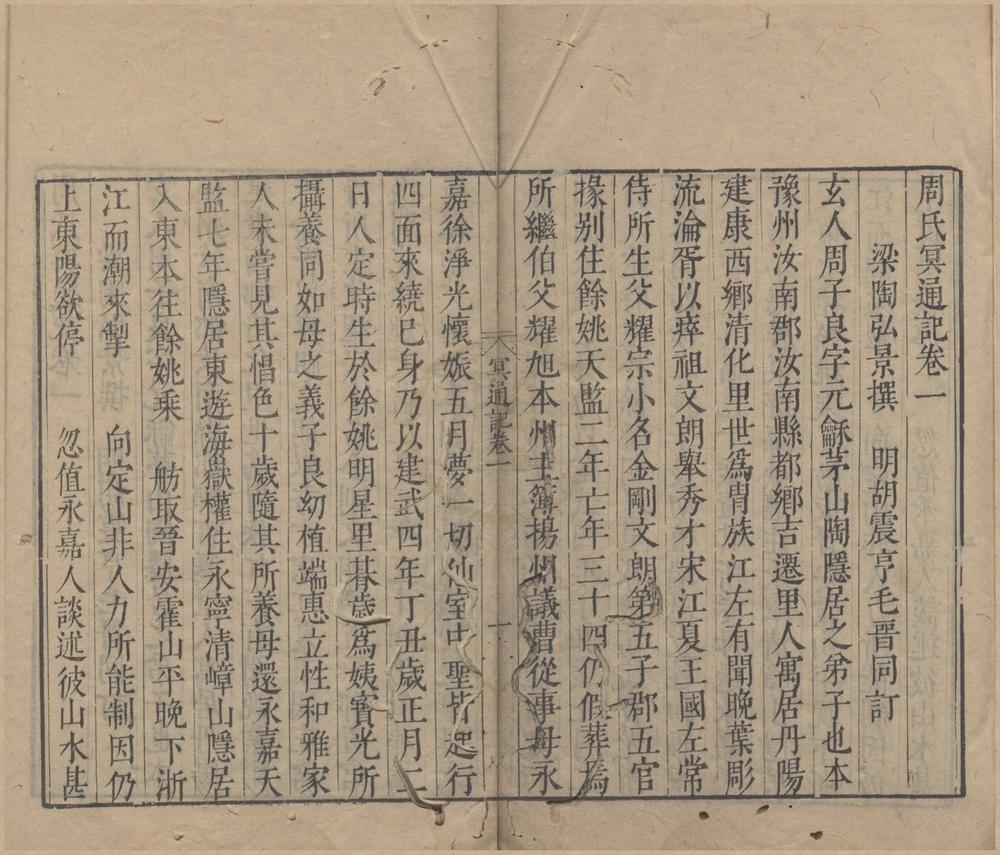 周氏冥通記卷一
梁陶弘景撰　明胡震亨毛晉同訂
玄人周子良字元龢茅山陶隱居之弟子也本
豫州汝南郡汝南縣都鄉吉遷里人寓居丹陽
建康西鄉清化里世爲胄族江左有聞晚葉彫
流淪胥以瘁祖文朗舉秀才宋江夏王國左常
侍所生父耀宗小名金剛文朗第五子郡五官
掾别住餘姚天監二年亡年三十四仍假葬焉
所繼伯父耀旭本州主簿揚州議曹從事母永
冥通記卷一
一
嘉徐淨光懷娠五月夢一切仙室中聖皆起行
四面來繞巳身乃以建武四年丁丑歲正月二
日人定時生於餘姚明星里朞歲爲姨寳光所
攝養同如母之義子良幼植端惠立性和雅家
人未嘗見其愠色十歲隨其所養母還永嘉天
監七年隱居東遊海嶽權住永寧清嶂山隱居
入東本往餘姚乘　舫取晉安霍山平晚下浙
江而潮來掣　向定山非人力所能制因仍
上東陽欲停　忽值永嘉人談述彼山水甚